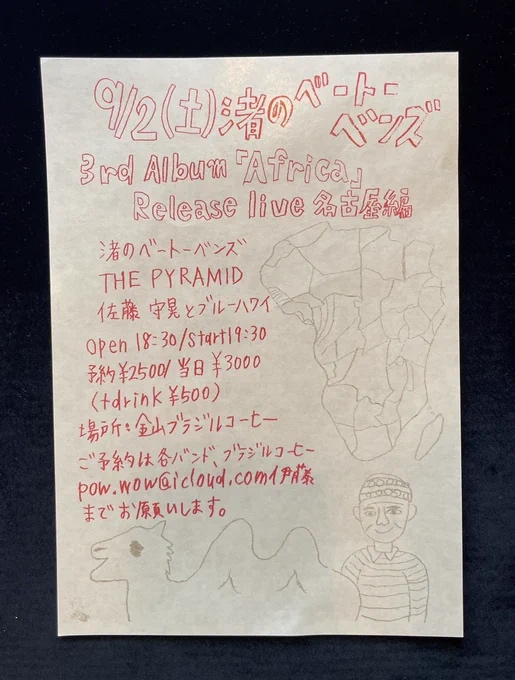 9/2(土)渚のベートーベンズ
3rd Album「Africa」
Release live 名古屋編
渚のベートーベンズ
THE PYRAMID
佐藤 守晃とブルーハワイ
open 18:30/start19:30
予約¥2500/当日¥3000
(+drink ¥500)
場所:金山ブラジルコーヒー
ご予約は各バンド、ブラジルコーヒー
pow.wow@icloud.com伊藤
までお願いします。